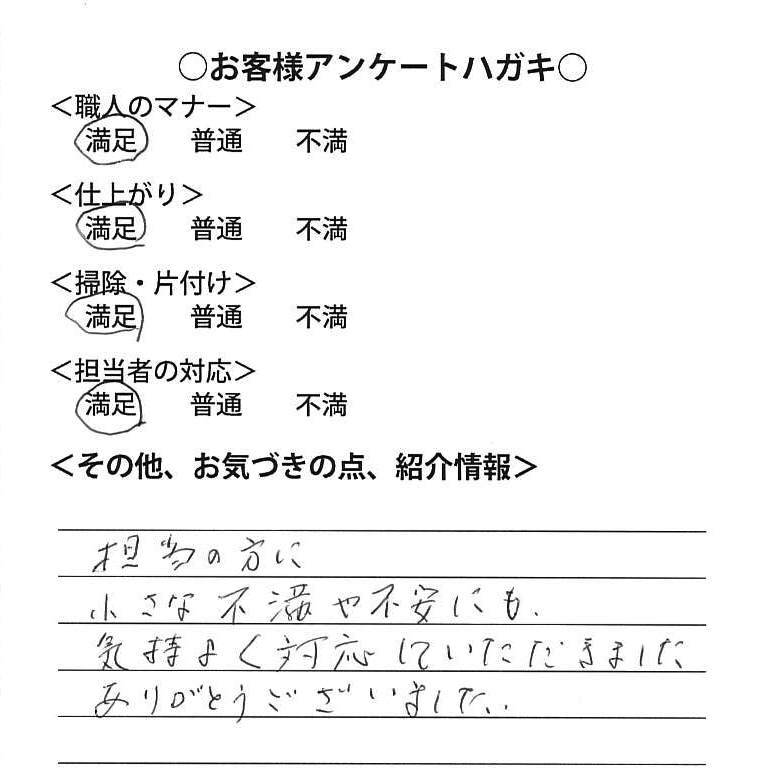 ○お客様アンケートハガキ○
＜職人のマナー＞
満足 普通 不満
＜仕上がり＞
満足 普通 不満
＜掃除・片付け＞
満足 普通 不満
＜担当者の対応＞
満足 普通 不満
＜その他、お気づきの点、紹介情報＞
担当の方に
小さな不満や不安にも、
気持よく対応していただきました
ありがとうございました。